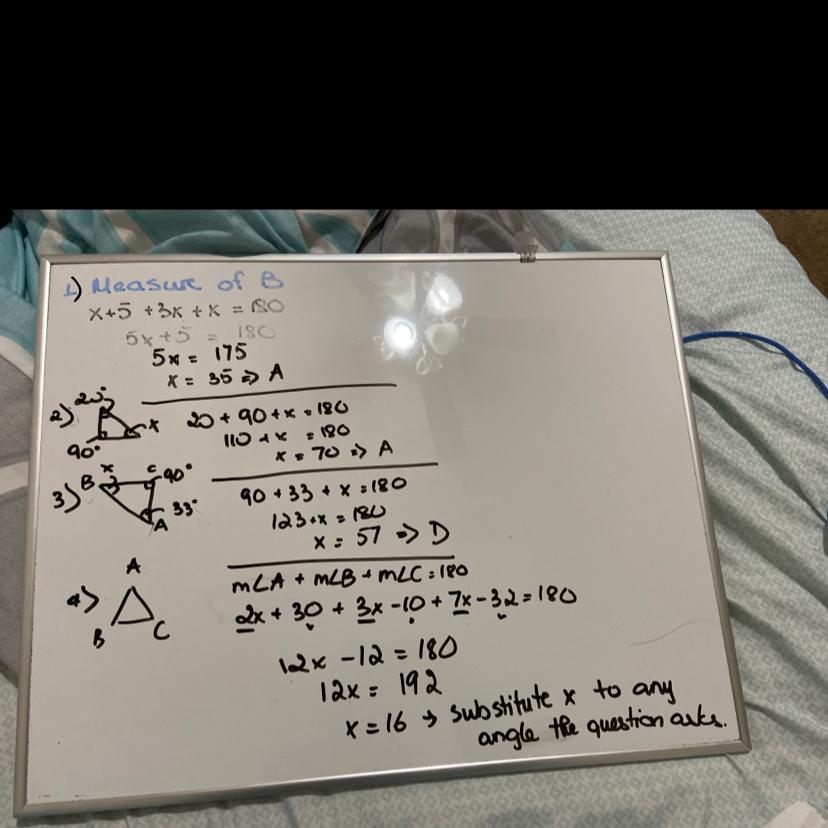 1) Measure of B
x+5 +3x + x = 180
5x+5 = 180
5x = 175
x = 35 => A
2) 20° x 90°
20 + 90 + x = 180
110 + x = 180
x = 70 => A
3) B x C 90° 33° A
90 + 33 + x = 180
123 + x = 180
x = 57 => D
4) A B C
m∠A + m∠B + m∠C = 180
2x + 30 + 3x - 10 + 7x - 32 = 180
12x - 12 = 180
12x = 192
x = 16 → substitute x to any
angle the question asks.